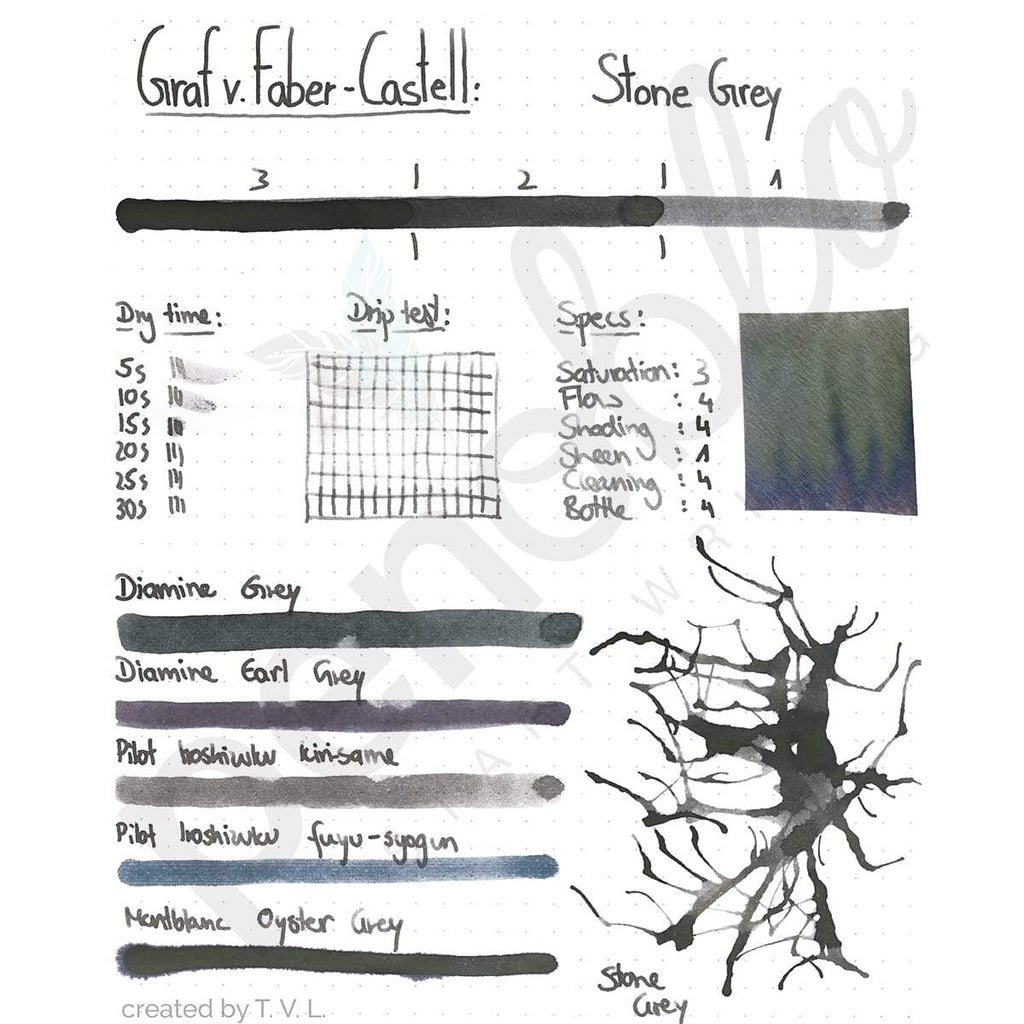 Graf v. Faber-Castell:
Stone Grey
3 | 2 | 1
| |
Dry time:
5s
10s
15s
20s
25s
30s
Drip test:
Specs:
Saturation: 3
Flow : 4
Shading : 4
Sheen : 1
Cleaning : 4
Bottle : 4
Diamine Grey
Diamine Earl Grey
Pilot Iroshizuku kiri-same
Pilot Iroshizuku fuyu-syogun
Montblanc Oyster Grey
Stone
Grey
penoblo
created by T. V. L.